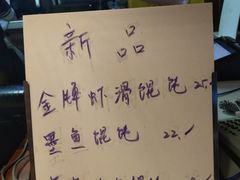 新品
金牌虾滑馄饨 25.-
墨鱼馄饨 22.-